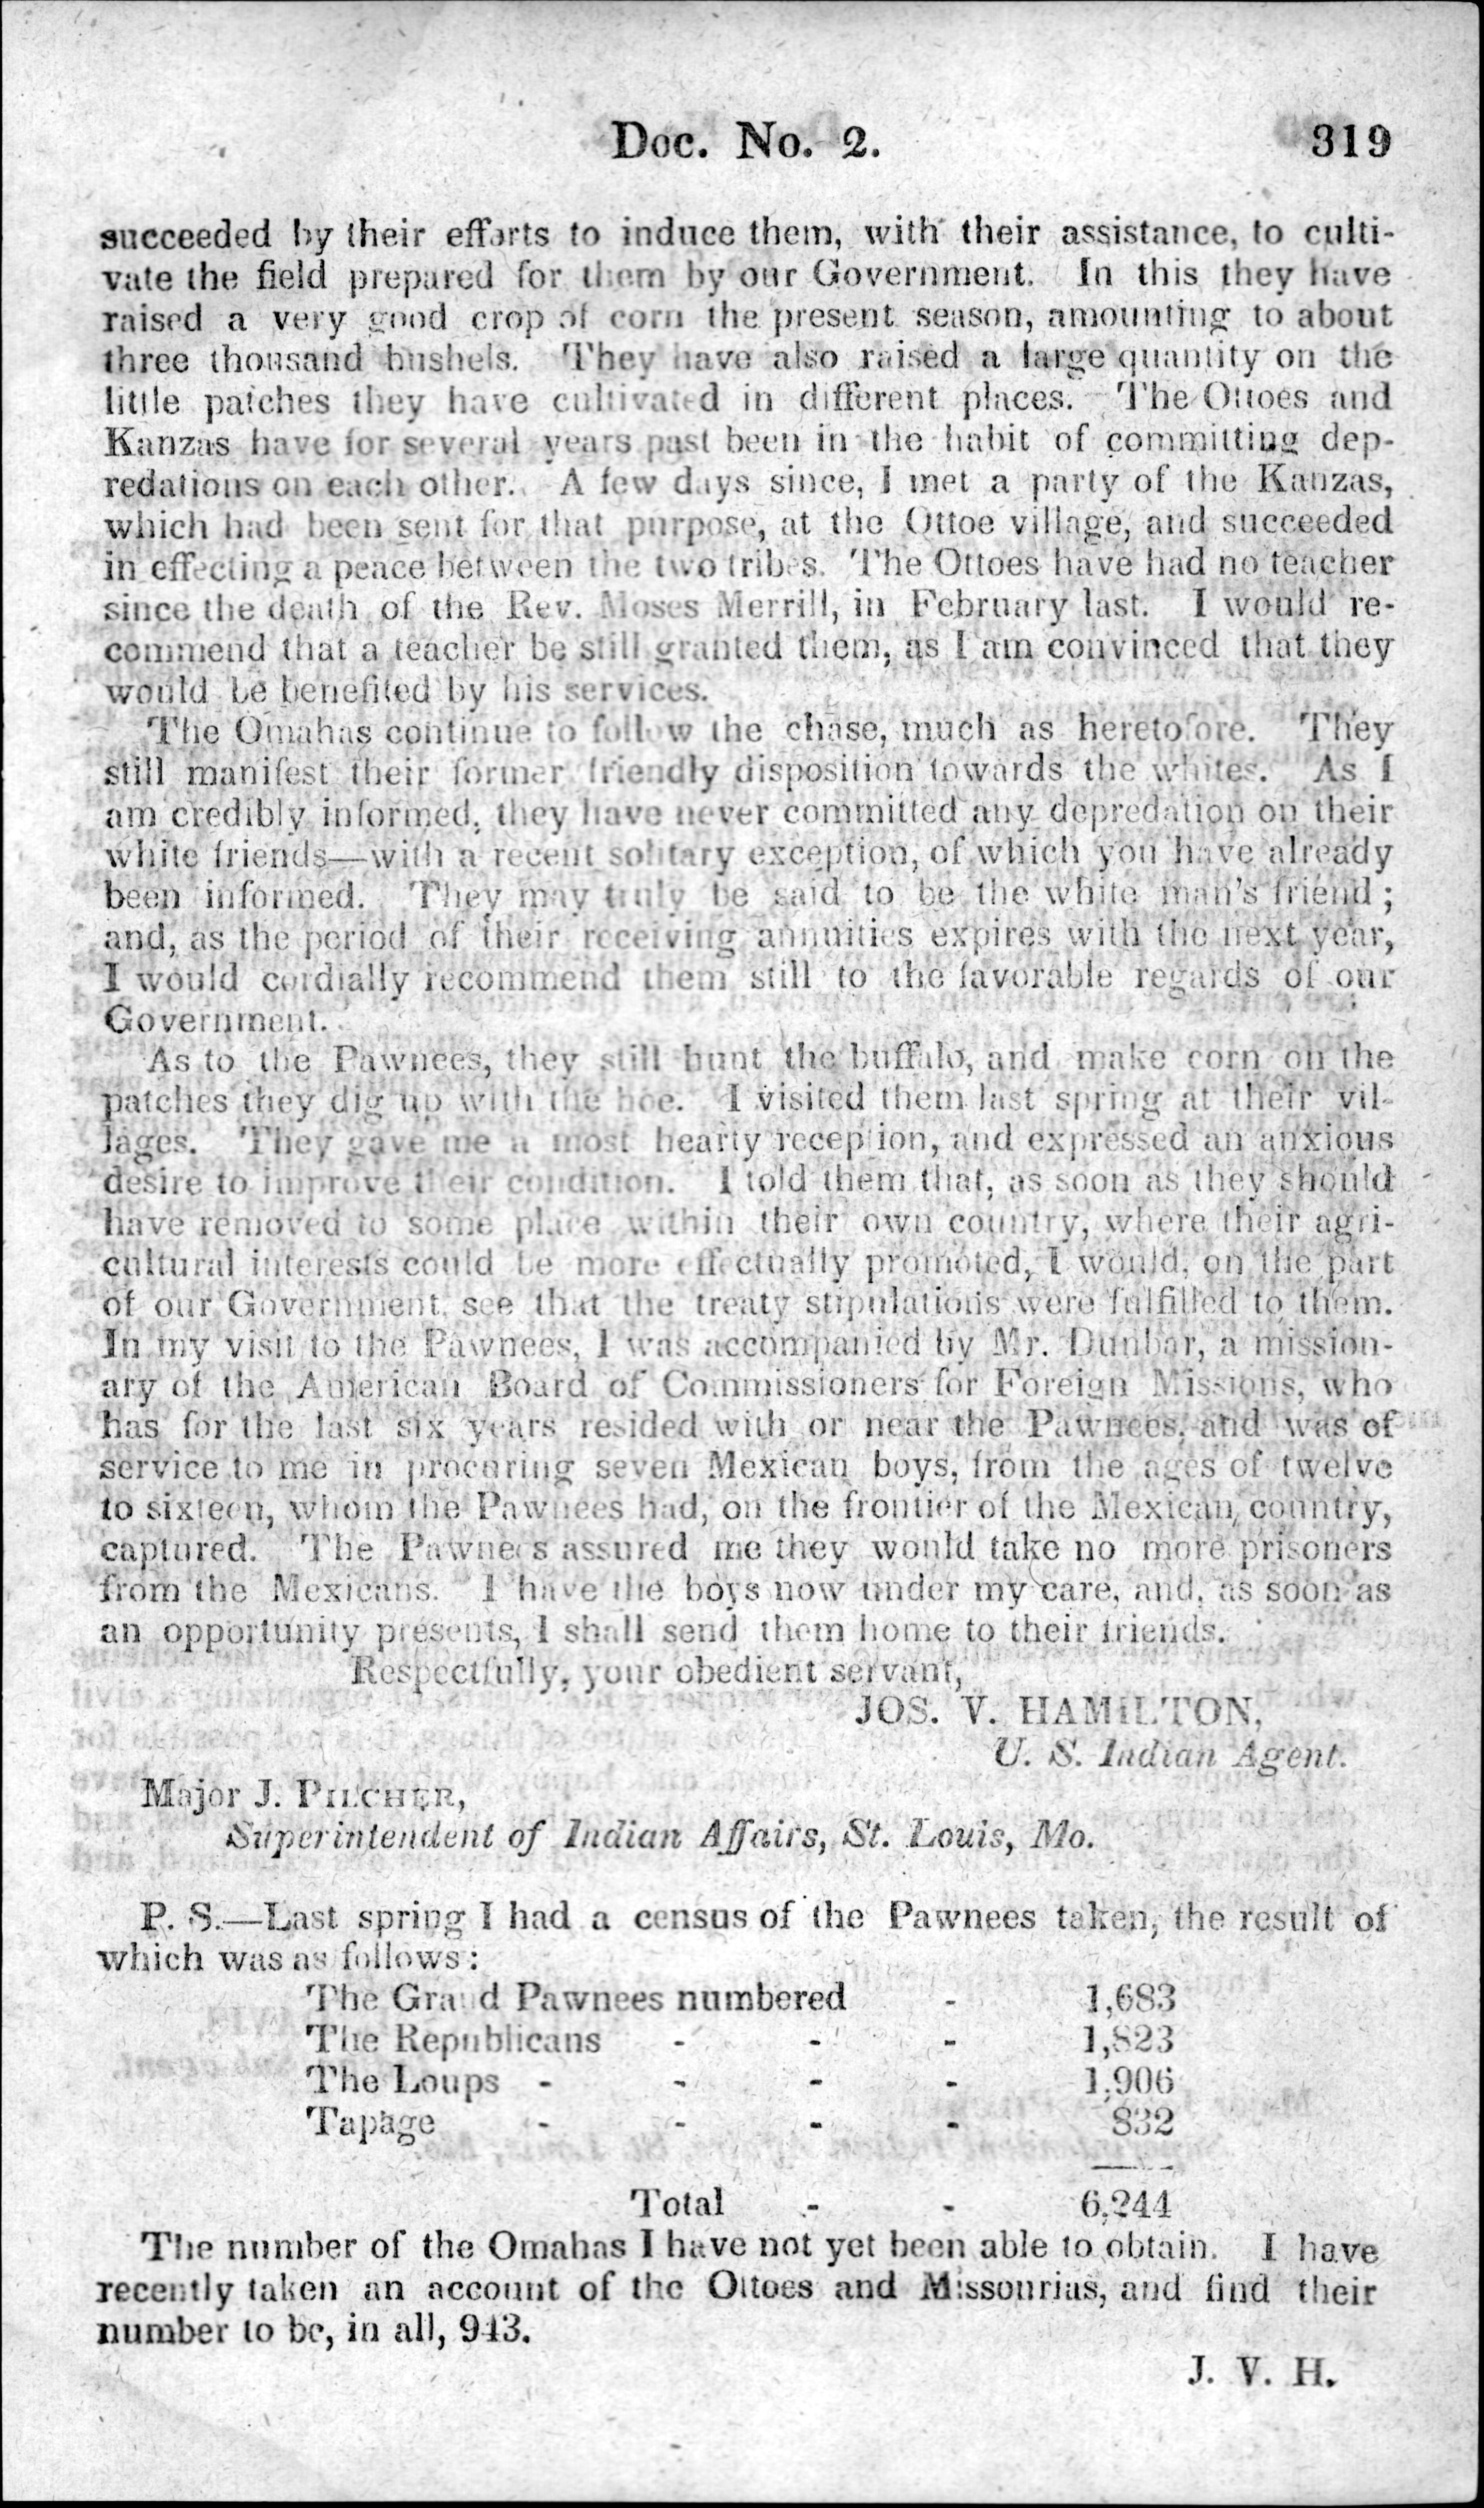 Doc. No. 2. 319
succeeded by their efforts to induce them, with their assistance, to culti-
vate the field prepared for them by our Government. In this they have
raised a very good crop of corn the present season, amounting to about
three thousand bushels. They have also raised a large quantity on the
little patches they have cultivated in different places. The Ottoes and
Kanzas have for several years past been in the habit of committing dep-
redations on each other. A few days since, I met a party of the Kanzas,
which had been sent for that purpose, at the Ottoe village, and succeeded
in effecting a peace between the two tribes. The Ottoes have had no teacher
since the death of the Rev. Moses Merrill, in February last. I would re-
commend that a teacher be still granted them, as I am convinced that they
would be benefited by his services.
The Omahas continue to follow the chase, much as heretofore. They
still manifest their former friendly disposition towards the whites. As I
am credibly informed, they have never committed any depredation on their
white friends—with a recent solitary exception, of which you have already
been informed. They may truly be said to be the white man's friend;
and, as the period of their receiving annuities expires with the next year,
I would cordially recommend them still to the favorable regards of our
Government.
As to the Pawnees, they still hunt the buffalo, and make corn on the
patches they dig up with the hoe. I visited them last spring at their vil-
lages. They gave me a most hearty reception, and expressed an anxious
desire to improve their condition. I told them that, as soon as they should
have removed to some place within their own country, where their agri-
cultural interests could be more effectually promoted, I would, on the part
of our Government, see that the treaty stipulations were fulfilled to them.
In my visit to the Pawnees, I was accompanied by Mr. Dunbar, a mission-
ary of the American Board of Commissioners for Foreign Missions, who
has for the last six years resided with or near the Pawnees, and was of
service to me in procuring seven Mexican boys, from the ages of twelve
to sixteen, whom the Pawnees had, on the frontier of the Mexican country,
captured. The Pawnees assured me they would take no more prisoners
from the Mexicans. I have the boys now under my care, and, as soon as
an opportunity presents, I shall send them home to their friends.
Respectfully, your obedient servant,
JOS. V. HAMILTON,
U. S. Indian Agent.
Major J. PILCHER,
Superintendent of Indian Affairs, St. Louis, Mo.
P. S.—Last spring I had a census of the Pawnees taken, the result of
which was as follows:
The Grand Pawnees numbered - 1,683
The Republicans - - - 1,823
The Loups - - - - 1,906
Tapage - - - - 832
Total - - 6,244
The number of the Omahas I have not yet been able to obtain. I have
recently taken an account of the Ottoes and Missourias, and find their
number to be, in all, 943.
J. V. H.